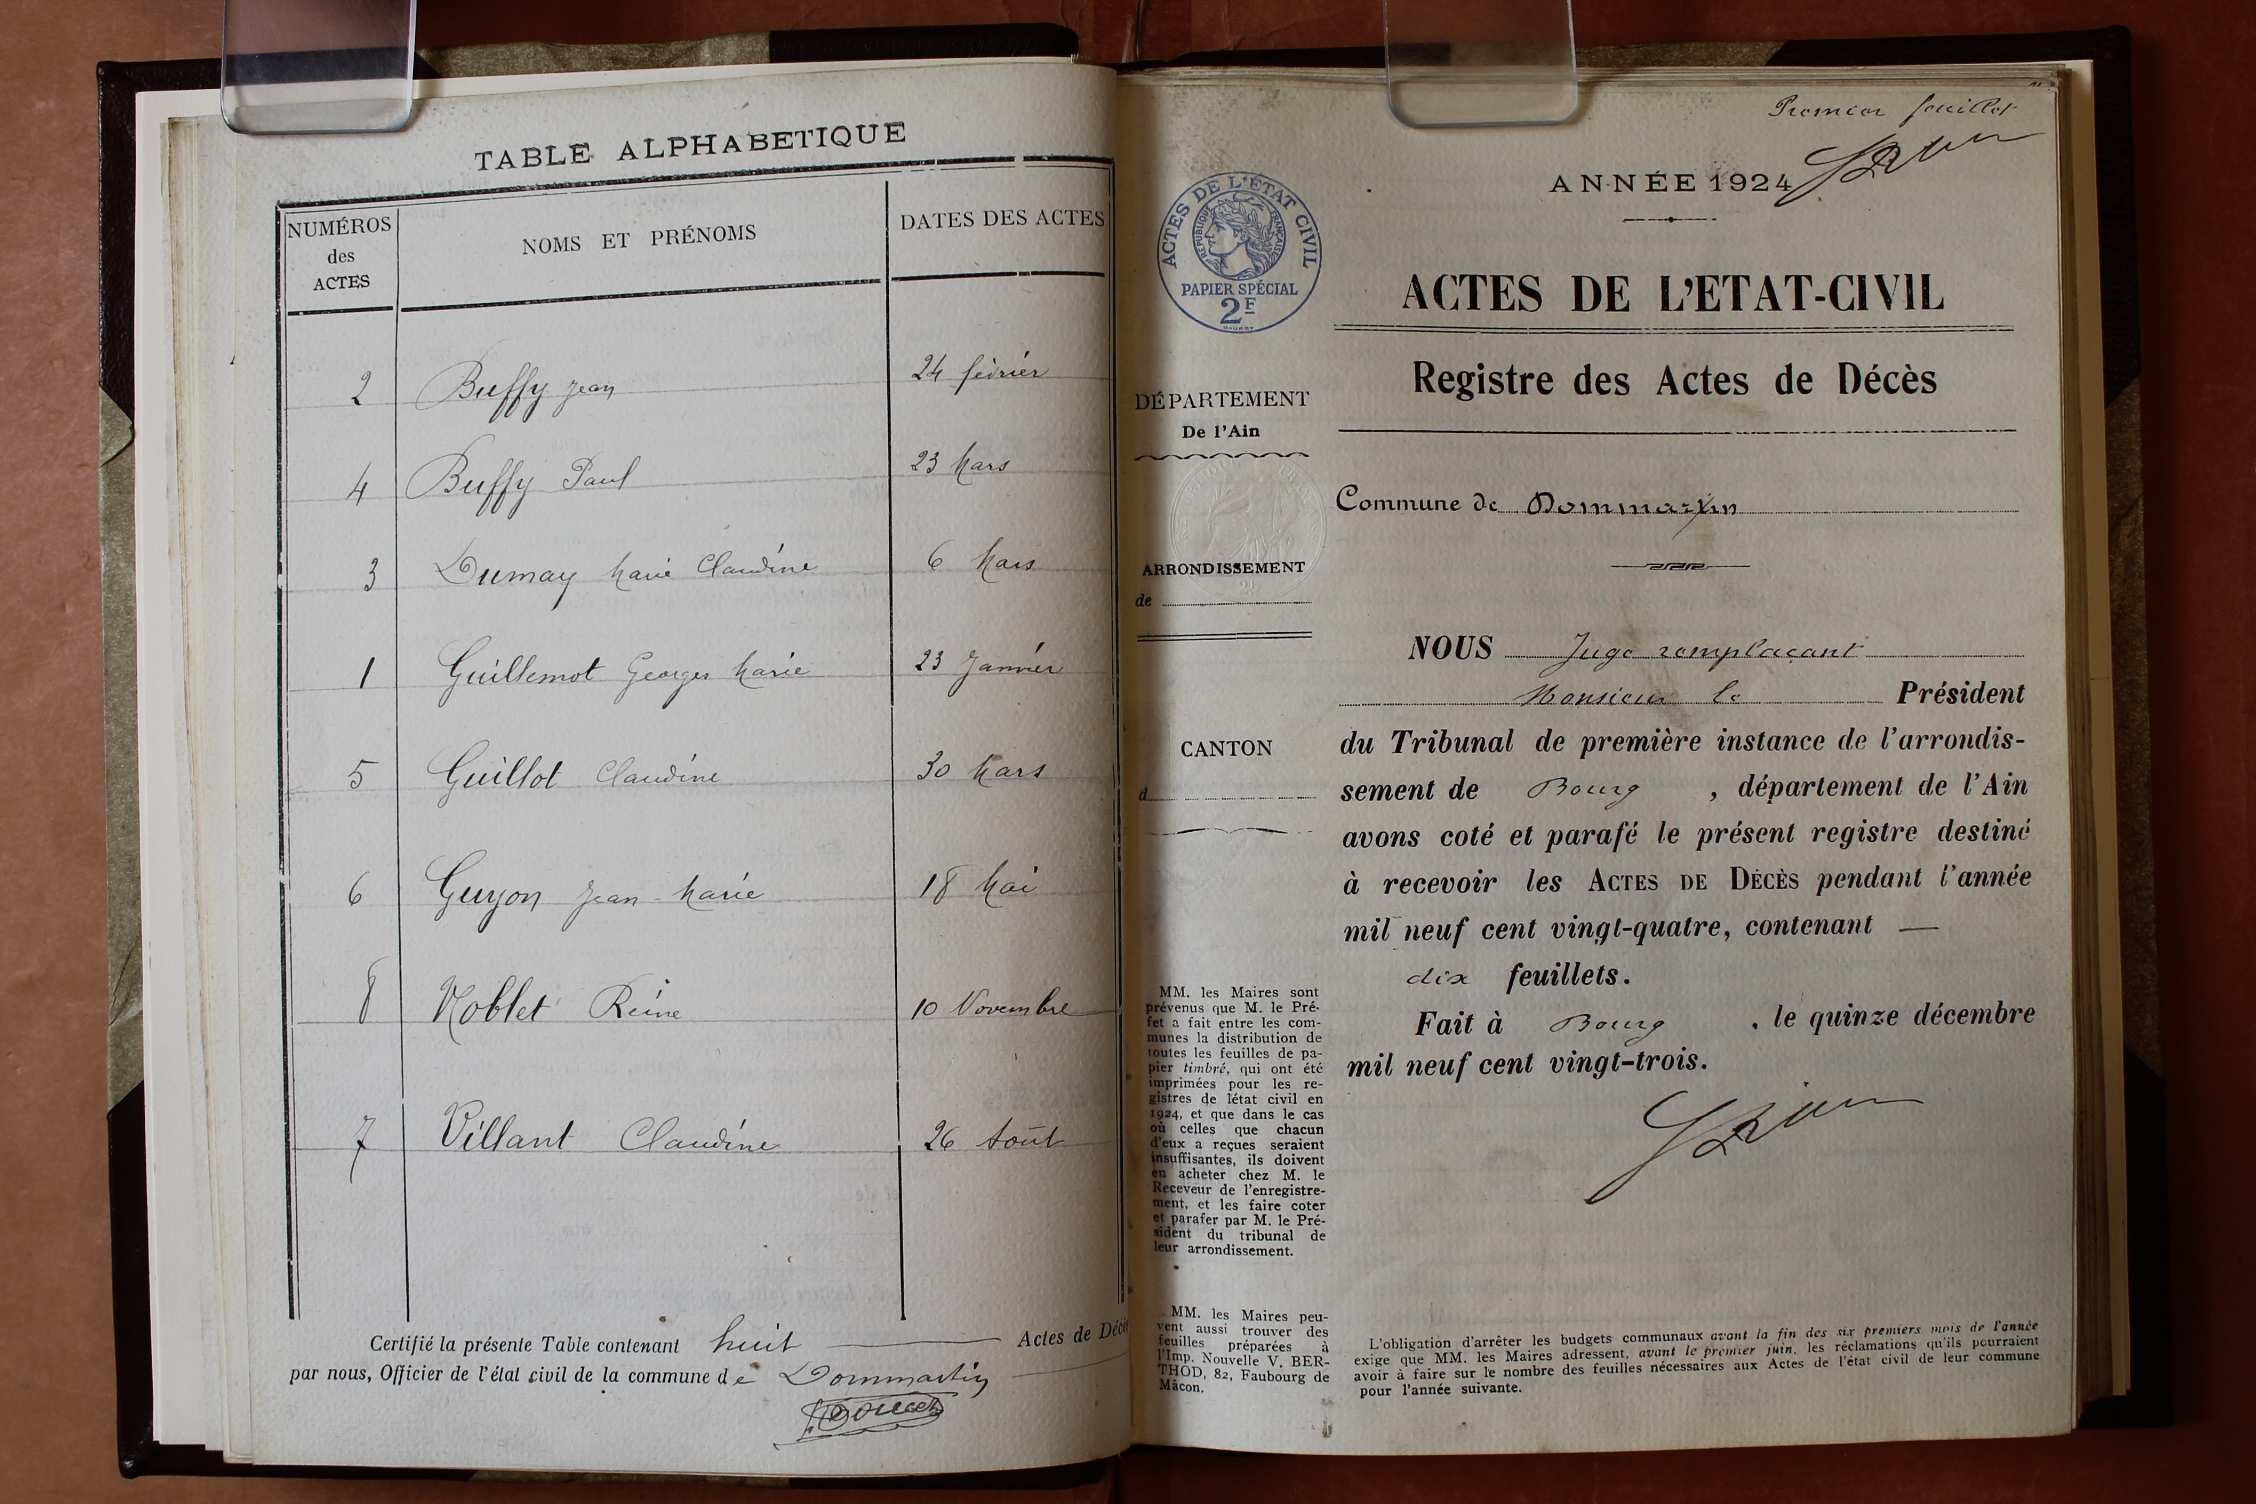 TABLE ALPHABETIQUE
NUMÉROS des ACTES
NOMS ET PRÉNOMS
DATES DES ACTES
2 Buffy Jean 24 février
4 Buffy Paul 23 Mars
3 Dumay Marie Claudine 6 Mars
1 Guillemot Georges Marie 23 Janvier
5 Guillot Claudine 30 Mars
6 Guyon Jean-Marie 18 Mai
8 Noblet Reine 10 Novembre
7 Villant Claudine 26 Août
Certifié la présente Table contenant huit Actes de Décès
par nous, Officier de l'état civil de la commune de Dommartin
Premier feuillet
ANNÉE 1924
ACTES DE L'ÉTAT CIVIL
RÉPUBLIQUE FRANÇAISE
PAPIER SPÉCIAL
2F
ACTES DE L'ETAT-CIVIL
Registre des Actes de Décès
DÉPARTEMENT
De l'Ain
Commune de Dommartin
ARRONDISSEMENT
de
CANTON
d
NOUS Juge remplaçant
Monsieur le Président
du Tribunal de première instance de l'arrondis-
sement de Bourg, département de l'Ain
avons coté et parafé le présent registre destiné
à recevoir les ACTES DE DÉCÈS pendant l'année
mil neuf cent vingt-quatre, contenant —
dix feuillets.
Fait à Bourg, le quinze décembre
mil neuf cent vingt-trois.
MM. les Maires sont
prévenus que M. le Pré-
fet a fait entre les com-
munes la distribution de
toutes les feuilles de pa-
pier timbré, qui ont été
imprimées pour les re-
gistres de l'état civil en
1924, et que dans le cas
où celles que chacun
d'eux a reçues seraient
insuffisantes, ils doivent
en acheter chez M. le
Receveur de l'enregistre-
ment, et les faire coter
et parafer par M. le Pré-
sident du tribunal de
leur arrondissement.
MM. les Maires peu-
vent aussi trouver des
feuilles préparées à
l'Imp. Nouvelle V. BER-
THOD, 82, Faubourg de
Mâcon.
L'obligation d'arrêter les budgets communaux avant la fin des six premiers mois de l'année
exige que MM. les Maires adressent, avant le premier juin, les réclamations qu'ils pourraient
avoir à faire sur le nombre des feuilles nécessaires aux Actes de l'état civil de leur commune
pour l'année suivante.